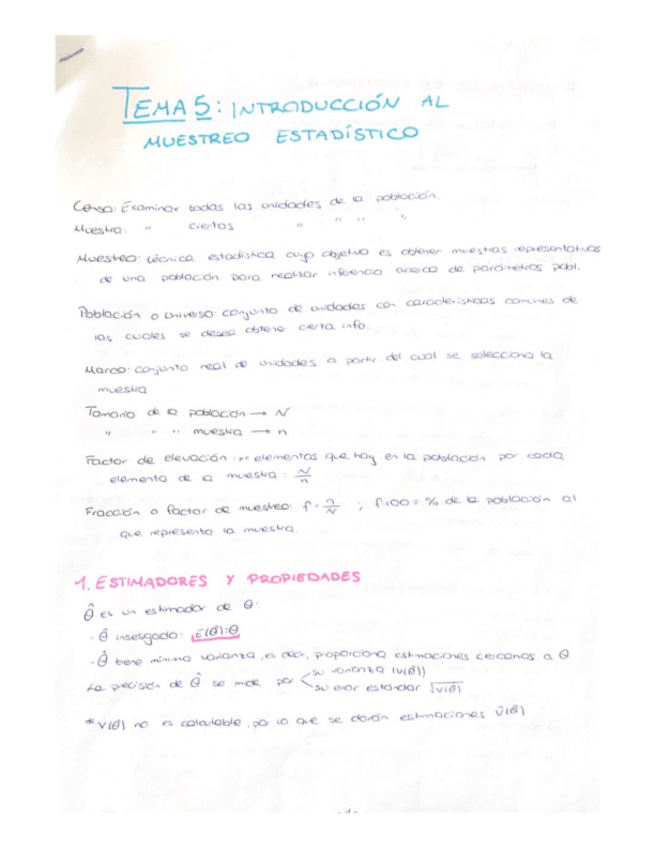 TEMA 5: INTRODUCCIÓN AL
MUESTREO ESTADÍSTICO
Censo: Examinar todas las unidades de la población.
Muestra: " ciertas " " " "
Muestreo: técnica estadística cuyo objetivo es obtener muestras representativas
de una población para realizar inferencia acerca de parámetros pobl.
Población o universo: conjunto de unidades con características comunes de
las cuales se desea obtener cierta info.
Marco: conjunto real de unidades a partir del cual se selecciona la
muestra
Tamaño de la población → N
" " " muestra → n
Factor de elevación: nº elementos que hay en la población por cada
elemento de la muestra: N/n
Fracción o factor de muestreo: f = n/N ; f·100 = % de la población al
que representa la muestra.
1. ESTIMADORES Y PROPIEDADES
θ̂ es un estimador de θ:
- θ̂ insesgado: E(θ̂)=θ
- θ̂ tiene mínima varianza, es decir, proporciona estimaciones cercanas a θ
La precisión de θ̂ se mide por su varianza (V(θ̂))
su error estándar √V(θ̂)
* V(θ̂) no es calculable, por lo que se darán estimaciones V̂(θ̂)
-1-